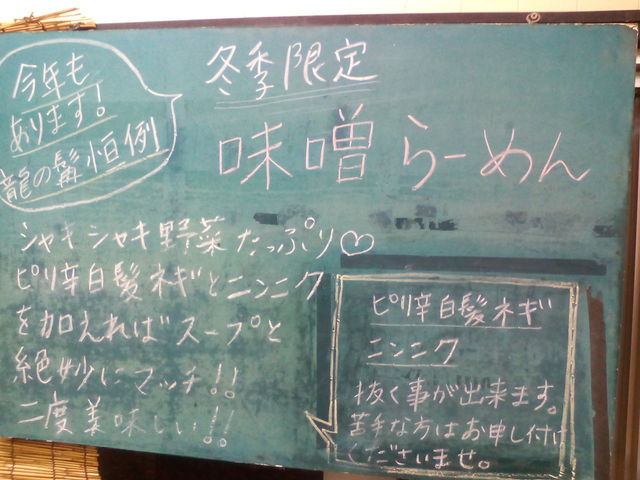 今年も
あります!
龍の髯 恒例
冬季限定
味噌らーめん
シャキシャキ野菜たっぷり♡
ピリ辛白髪ネギとニンニク
を加えればスープと
絶妙にマッチ!!
二度美味しい!!
ピリ辛白髪ネギ
ニンニク
抜く事が出来ます。
苦手な方はお申し付け
くださいませ。